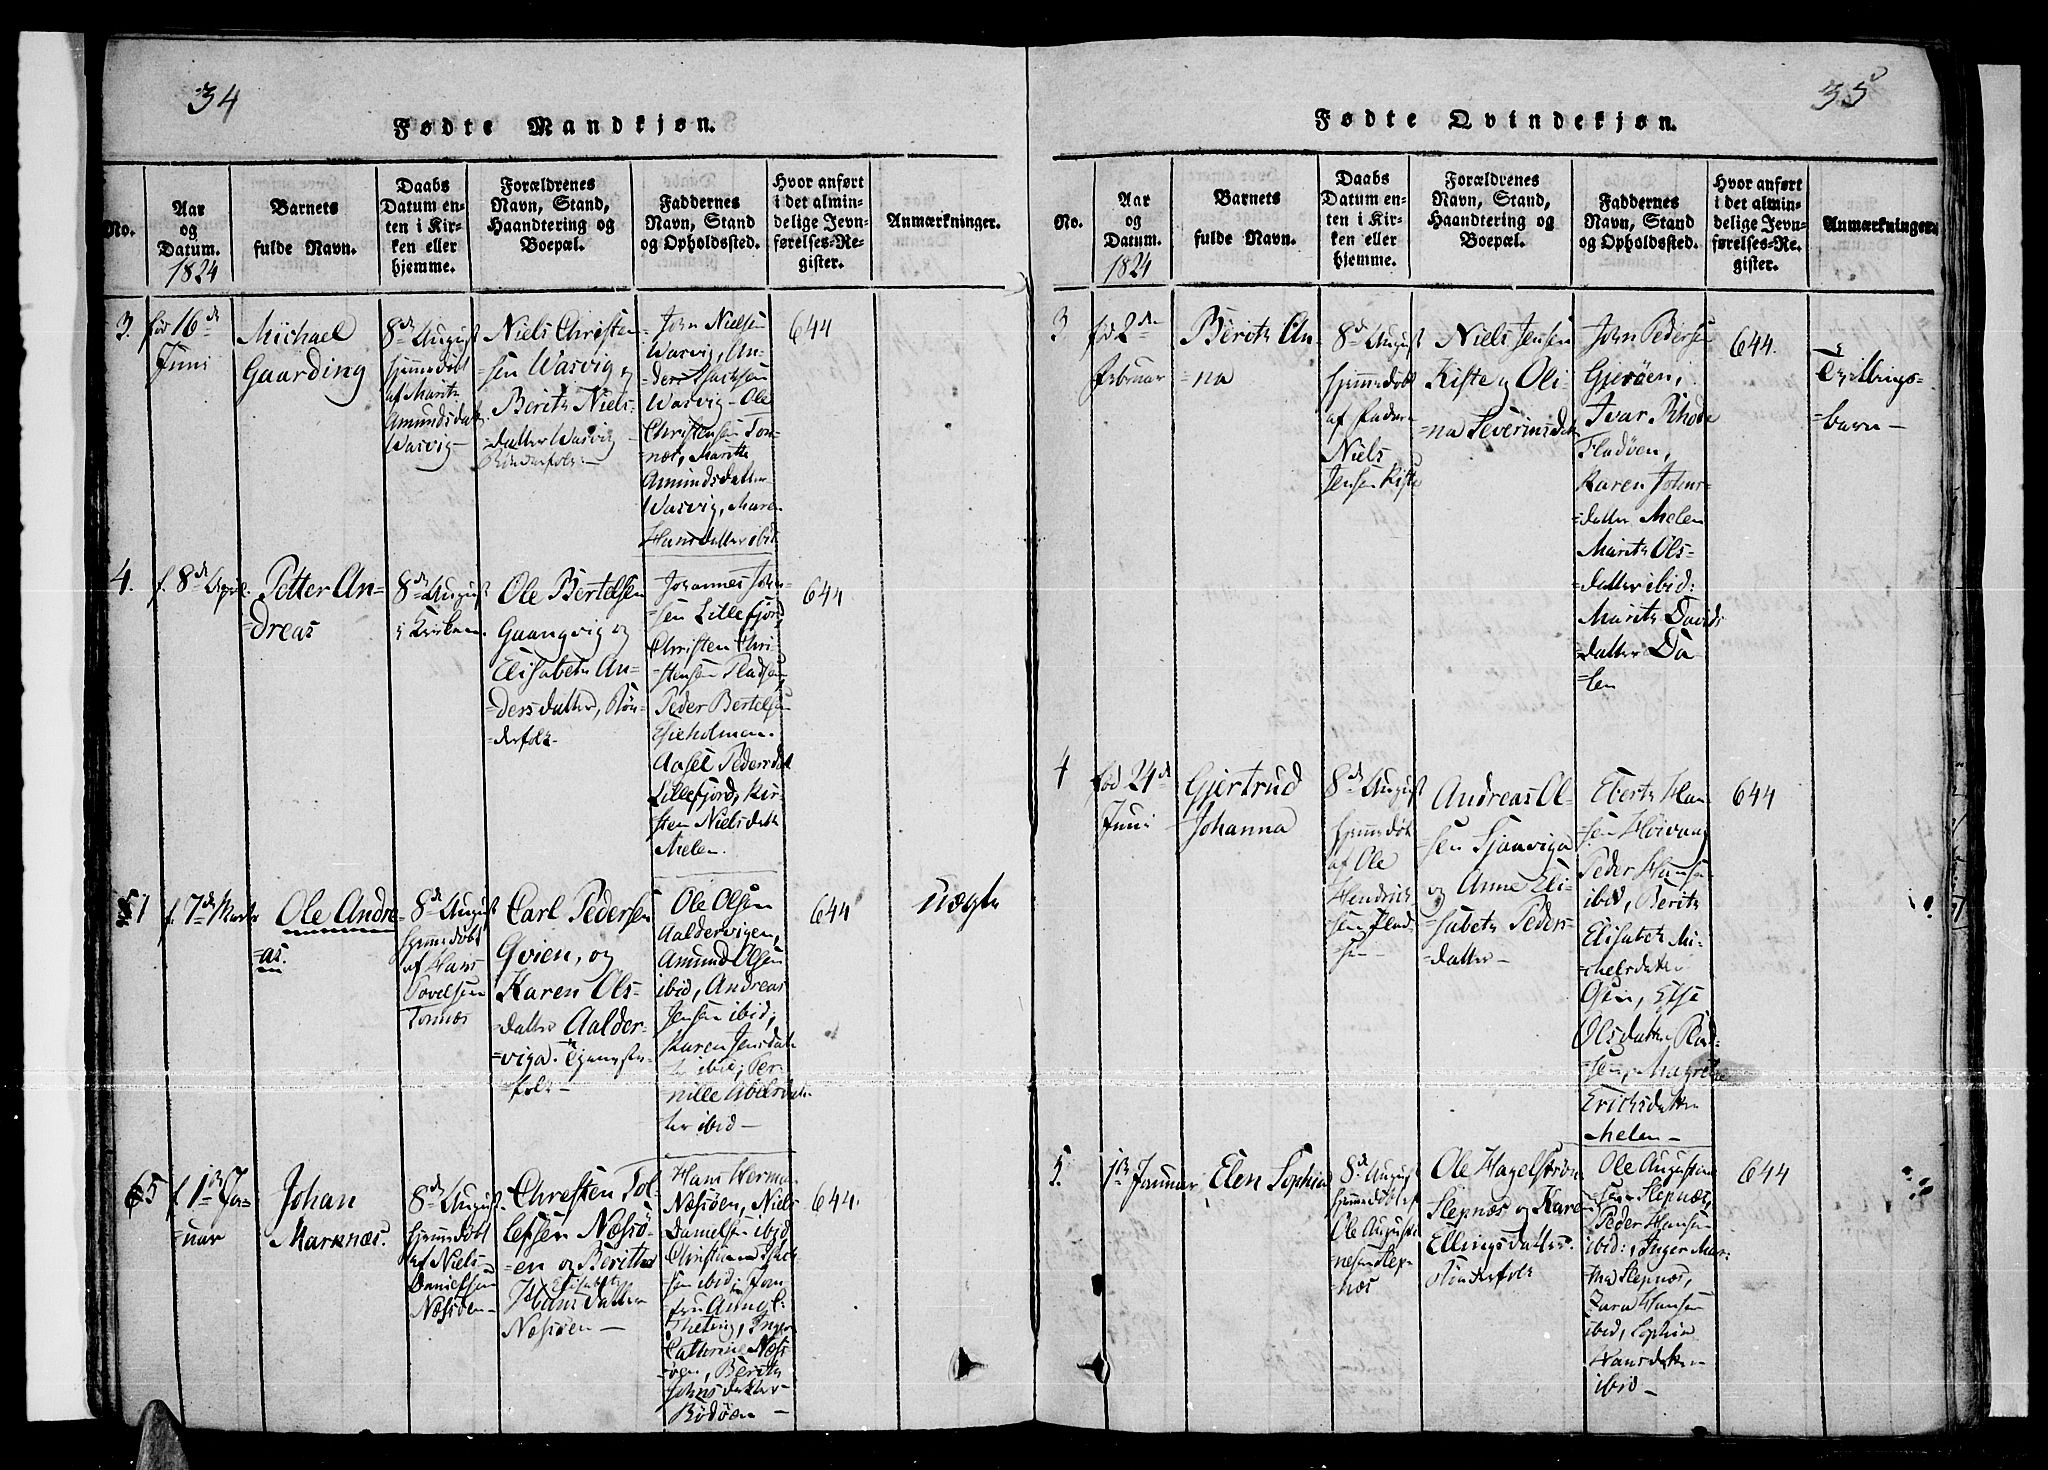 34
Fødte Mandkjøn.
No.
Aar
og
Datum.
1824
Barnets
fulde Navn.
Daabs
Datum en-
ten i Kir-
ken eller
hjemme.
Forældrenes
Navn, Stand,
Haandtering og
Boepæl.
Faddernes
Navn, Stand
og Opholdssted.
Hvor anført
i det almin-
delige Jevn-
førelses-Re-
gister.
Anmærkninger.
3.
fød 16de
Juni
Michael
Gaarding
8de August
hjemmedøbt
af Marith
Amundsdatt
Wasvig
Niels Christen-
sen Wasvig og
Berith Niels-
datter Wasvig
Bönderfolk-
John Nielsen
Wasvig, An-
ders Isachsen
Wasvig- Ole
Christensen Ton-
næs, Marith
Amundsdatter
Wasvig, Maren
Hansdatter ibid
644
4.
f. 8de April.
Petter An-
dreas
8de August
i Kirken.
Ole Bertelsen
Gaangvig og
Elisabeth An-
dersdatter, Bön-
derfolk-
Johannes John-
sen Lillefjord
Christen Chri-
stensen Pladsen
Peder Bertelsen
Aasel Pedersdat
Lillefjord, Kir-
sten Nielsdatt
Melen.
644
51
f. 7de Marts
Ole Andre-
as.
8de August
hjemmedøbt
af Hans
Povelsen
Tonnæs
Carl Pedersen
Qvien, og
Karen Ols-
datter Aalder-
viga. Tjeneste-
folk-
Ole Olsen
Aaldervigen,
Amund Olsen
ibid, Andreas
Jensen ibid,
Karen Jensdat-
ter ibid, Per-
nille Abelsdat-
ter ibid-
644
uægte
65
f. 1ste Ja-
nuar
Johan
Marknæs.
8de August
hjemmedøbt
af Niels
Danielsen
Næsöen-
Christen Tol-
lefsen Næsö-
en og Berith
Elisabeth
Hansdatter
Næsöen-
Hans Herma
Næsöen, Niels
Danielsen ibid
Christian Isach-
sen ibid, Jom-
fru Anne
Theting, Inger
Cathrine Næs-
öen, Berith
Johnsdatter
Rödöen-
644.
35
Fødte Qvindekjøn.
No.
Aar
og
Datum.
1824
Barnets
fulde Navn.
Daabs
Datum en-
ten i Kir-
ken eller
hjemme.
Forældrenes
Navn, Stand,
Haandtering og
Boepæl.
Faddernes
Navn, Stand
og Opholdssted.
Hvor anført
i det almin-
delige Jevn-
førelses-Re-
gister.
Anmærkninger.
3
fød 2den
Februar
Berith An-
na
8de August
hjemmedøbt
af Faderen
Niels
Jensen Kiste
Niels Jensen
Kiste og Oli-
na Severinsdatt
John Pedersen
Gjeröen,
Ivar Rhode
Fladöen,
Karen Johns-
datter Melen
Marith Ols-
datter ibid:
Marith Davids-
datter Da-
len
644.
Tvillings-
barn-
4
fød 24de
Juni
Gjertrud
Johanna
8de August
hjemmedøbt
af Ole
Hendrich-
sen Plad-
sen-
Andreas Ol-
sen Sjaaviga
og Anne Eli-
sabeth Peders-
datter-
Ebert Han
sen Höivaag
Peder Hansen
ibid, Berith
Elisabeth Mi-
chelsdatter
Else
Olsdatter Plad-
sen, Magrete
Erichsdatter
Melen-
644
5.
1ste Januar
Elen Sophia
8de August
hjemmedøbt af
Ole Augusti-
nesen Slep-
næs
Ole Hagelström
Slepnæs og Karen
Ellingsdatter.
Bönderfolk
Ole Augustine-
sen Slepnæs,
Peder Hansen
ibid:, Inger Mar-
tha Slepnæs,
Zara Hansen
ibid, Sophia
Hansdatter
ibid-
644